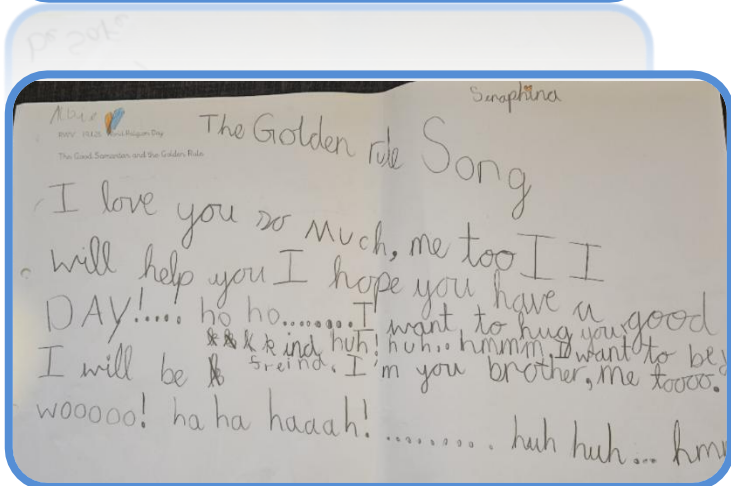 Seraphina
Albie
World Religion Day
The Good Samaritan and the Golden Rule
The Golden rule Song
I love you so much, me too I I
will help you I hope you have a good
DAY!..... ho ho........I want to hug you,
kind huh! huh.. hmmm, I want to be y
I will be freind. I'm you brother, me toooo.
wooooo! ha ha haaah!......... huh huh... hmm